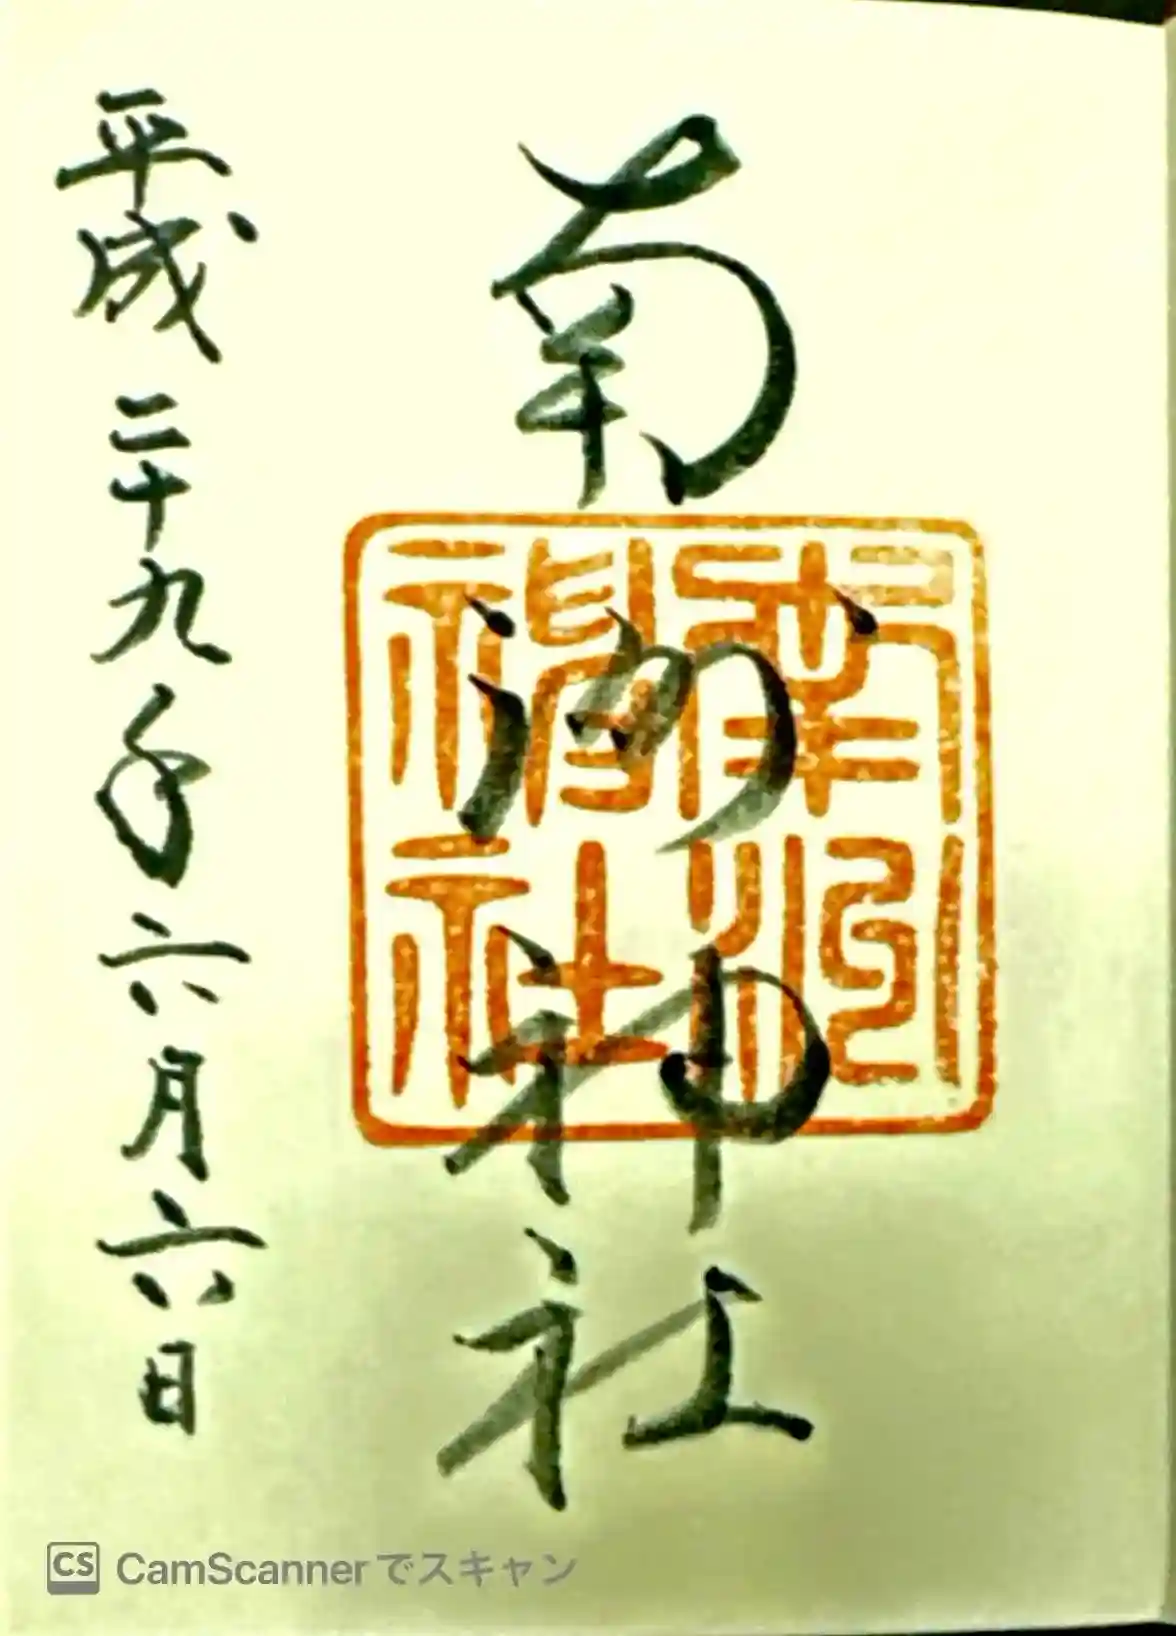 南洲神社
南洲
神社
平成二十九年六月六日
CS CamScannerでスキャン